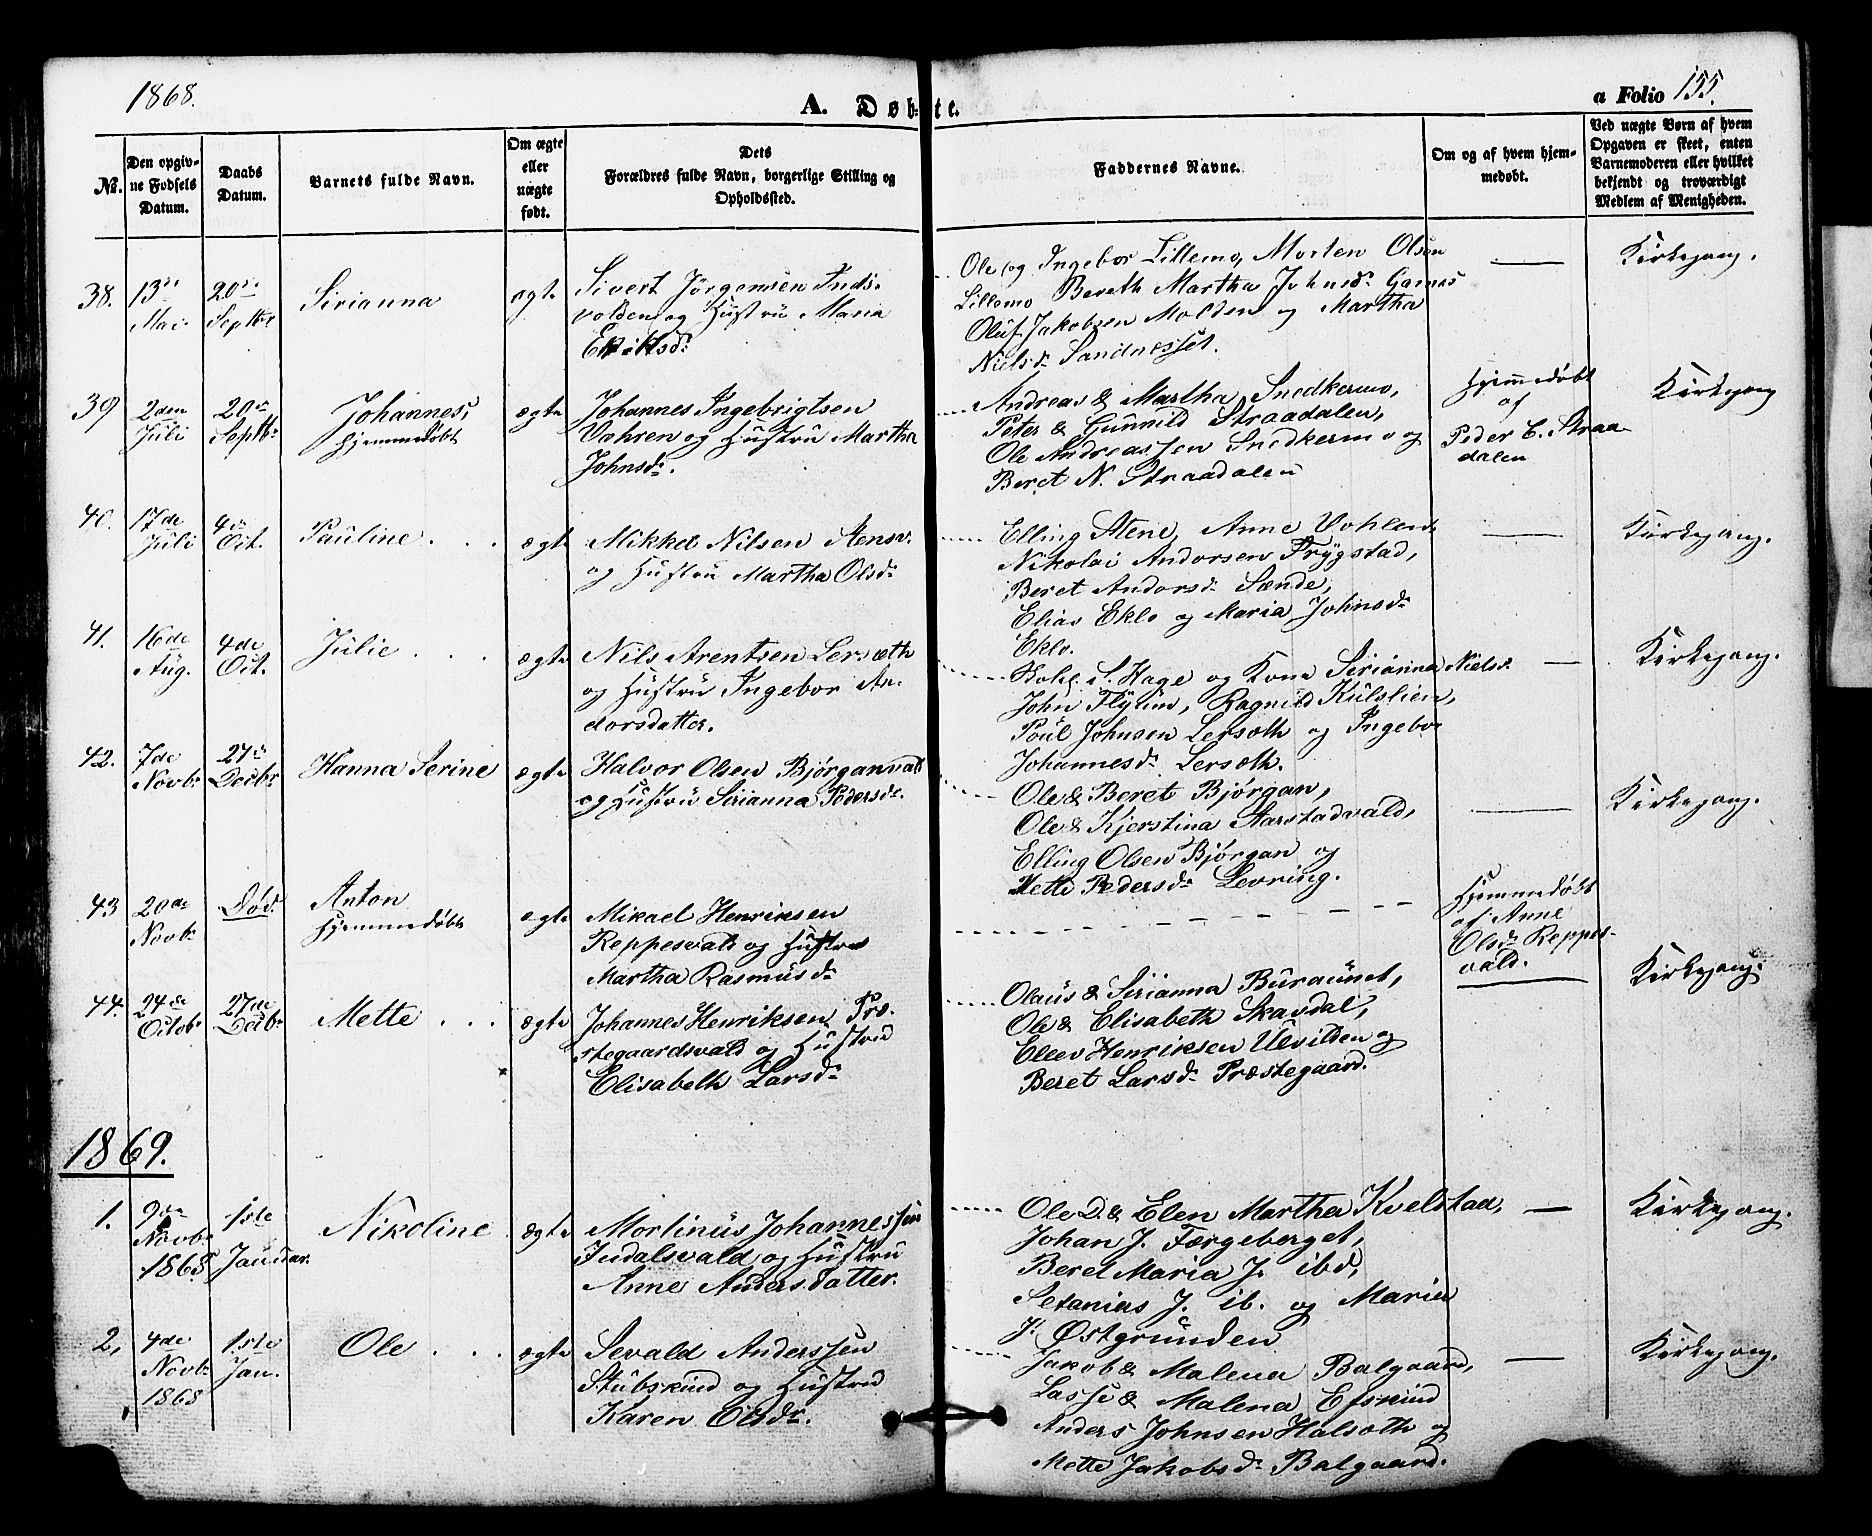 1868.
A. Døbte.
a Folio 155.
No.
Den opgivne Fødsels Datum.
Daabs Datum.
Barnets fulde Navn.
Om ægte eller uægte født.
Dets Forældres fulde Navn, borgerlige Stilling og Opholdssted.
Faddernes Navne.
Om og af hvem hjemmedøbt.
Ved uægte Børn af hvem Opgaven er skeet, enten Barnemoderen eller hvilket bekjendt og troværdigt Medlem af Menigheden.
38. 13de Mai. 20de Septbr Sirianna ægte
Sivert Jørgensen Inds-
volden og Hustru Maria
Eriksdr
Ole og Ingebor Lillemo, Morten Olsen
Lillemo Bereth Martha Johnsdr Garnes
Oluf Jakobsen Molden og Martha
Nielsdr Sandnesset.
— Kirkegang.
39 2den Juli 20de Septbr Johannes, hjemmedøbt ægte
Johannes Ingebrigtsen
Vohren og Hustru Martha
Johnsdr.
Andreas & Martha Snedkermo,
Peter & Gunnild Straadalen,
Ole Andreassen Snedkermo og
Beret N. Straadalen
Hjemmedøbt
af
Peder E. Straa-
dalen
Kirkegang
40. 17de Juli 4de Oct. Pauline . . . ægte
Mikkel Nilsen Stensv.
og Hustru Martha Olsdr
Elling Stene, Anne Vohlen
Nikolai Andorsen Trygstad,
Beret Andorsdr Sænde,
Elias Eklo og Maria Johnsdr
Eklo.
— Kirkegang.
41. 16de Aug. 4de Oct. Julie . . . ægte
Nils Arentsen Lersæth
og Hustru Ingebor An-
dorsdatter.
S. Hage og Kone Sirianna Nielsdr
John Flyum, Ragnild Kulslien,
Poul Johnsen Lersoth og Ingebor
Johannesdr Lersoth.
— Kirkegang.
42. 7de Novbr 27de Decbr Hanna Serine ægte
Halvor Olsen Bjørganvald
og Hustru Sirianna Pedersdr.
Ole & Beret Bjørgan,
Ole & Kjerstina Aarstadvald,
Elling Olsen Bjørgan og
Mette Pedersdr Levring.
— Kirkegang.
43 20de Novbr Død. Anton Hjemmedøbt ægte
Mikael Henriksen
Reppesvald og Hustru
Martha Rasmusdr
Hjemmedøbt
af Anne
Olsdr Reppes-
vald.
44. 24de Octobr 27de Decbr Mette . . . ægte
Johannes Henriksen Præ-
stegaardsvald og Hustru
Elisabeth Larsdr
Olaus & Sirianna Buraunet,
Ole & Elisabeth Skavdal,
Ellev Henriksen Ulvilden og
Beret Larsdr Præstegaard.
— Kirkegang.
1869.
1. 9de Novbr 1868 1ste Januar. Nikoline ægte
Mortinus Johannessen
Indalsvald og Hustru
Anne Anders Datter.
Ole D. & Elen Martha Kvelstad,
Johan J. Færgeberget,
Beret Maria J. ibd,
Setanius J. ib. og Maria
J. Østgrunden
— Kirkegang.
2, 4de Novbr 1868 1ste Jan. Ole . . . ægte
Sevald Anderssen
Stubskind og Hustru
Karen Olsdr.
Jakob & Malena Balgaard,
Lasse & Malena Efskind
Anders Johnsen Halsoth og
Mette Jakobsdr Balgaard.
— Kirkegang.